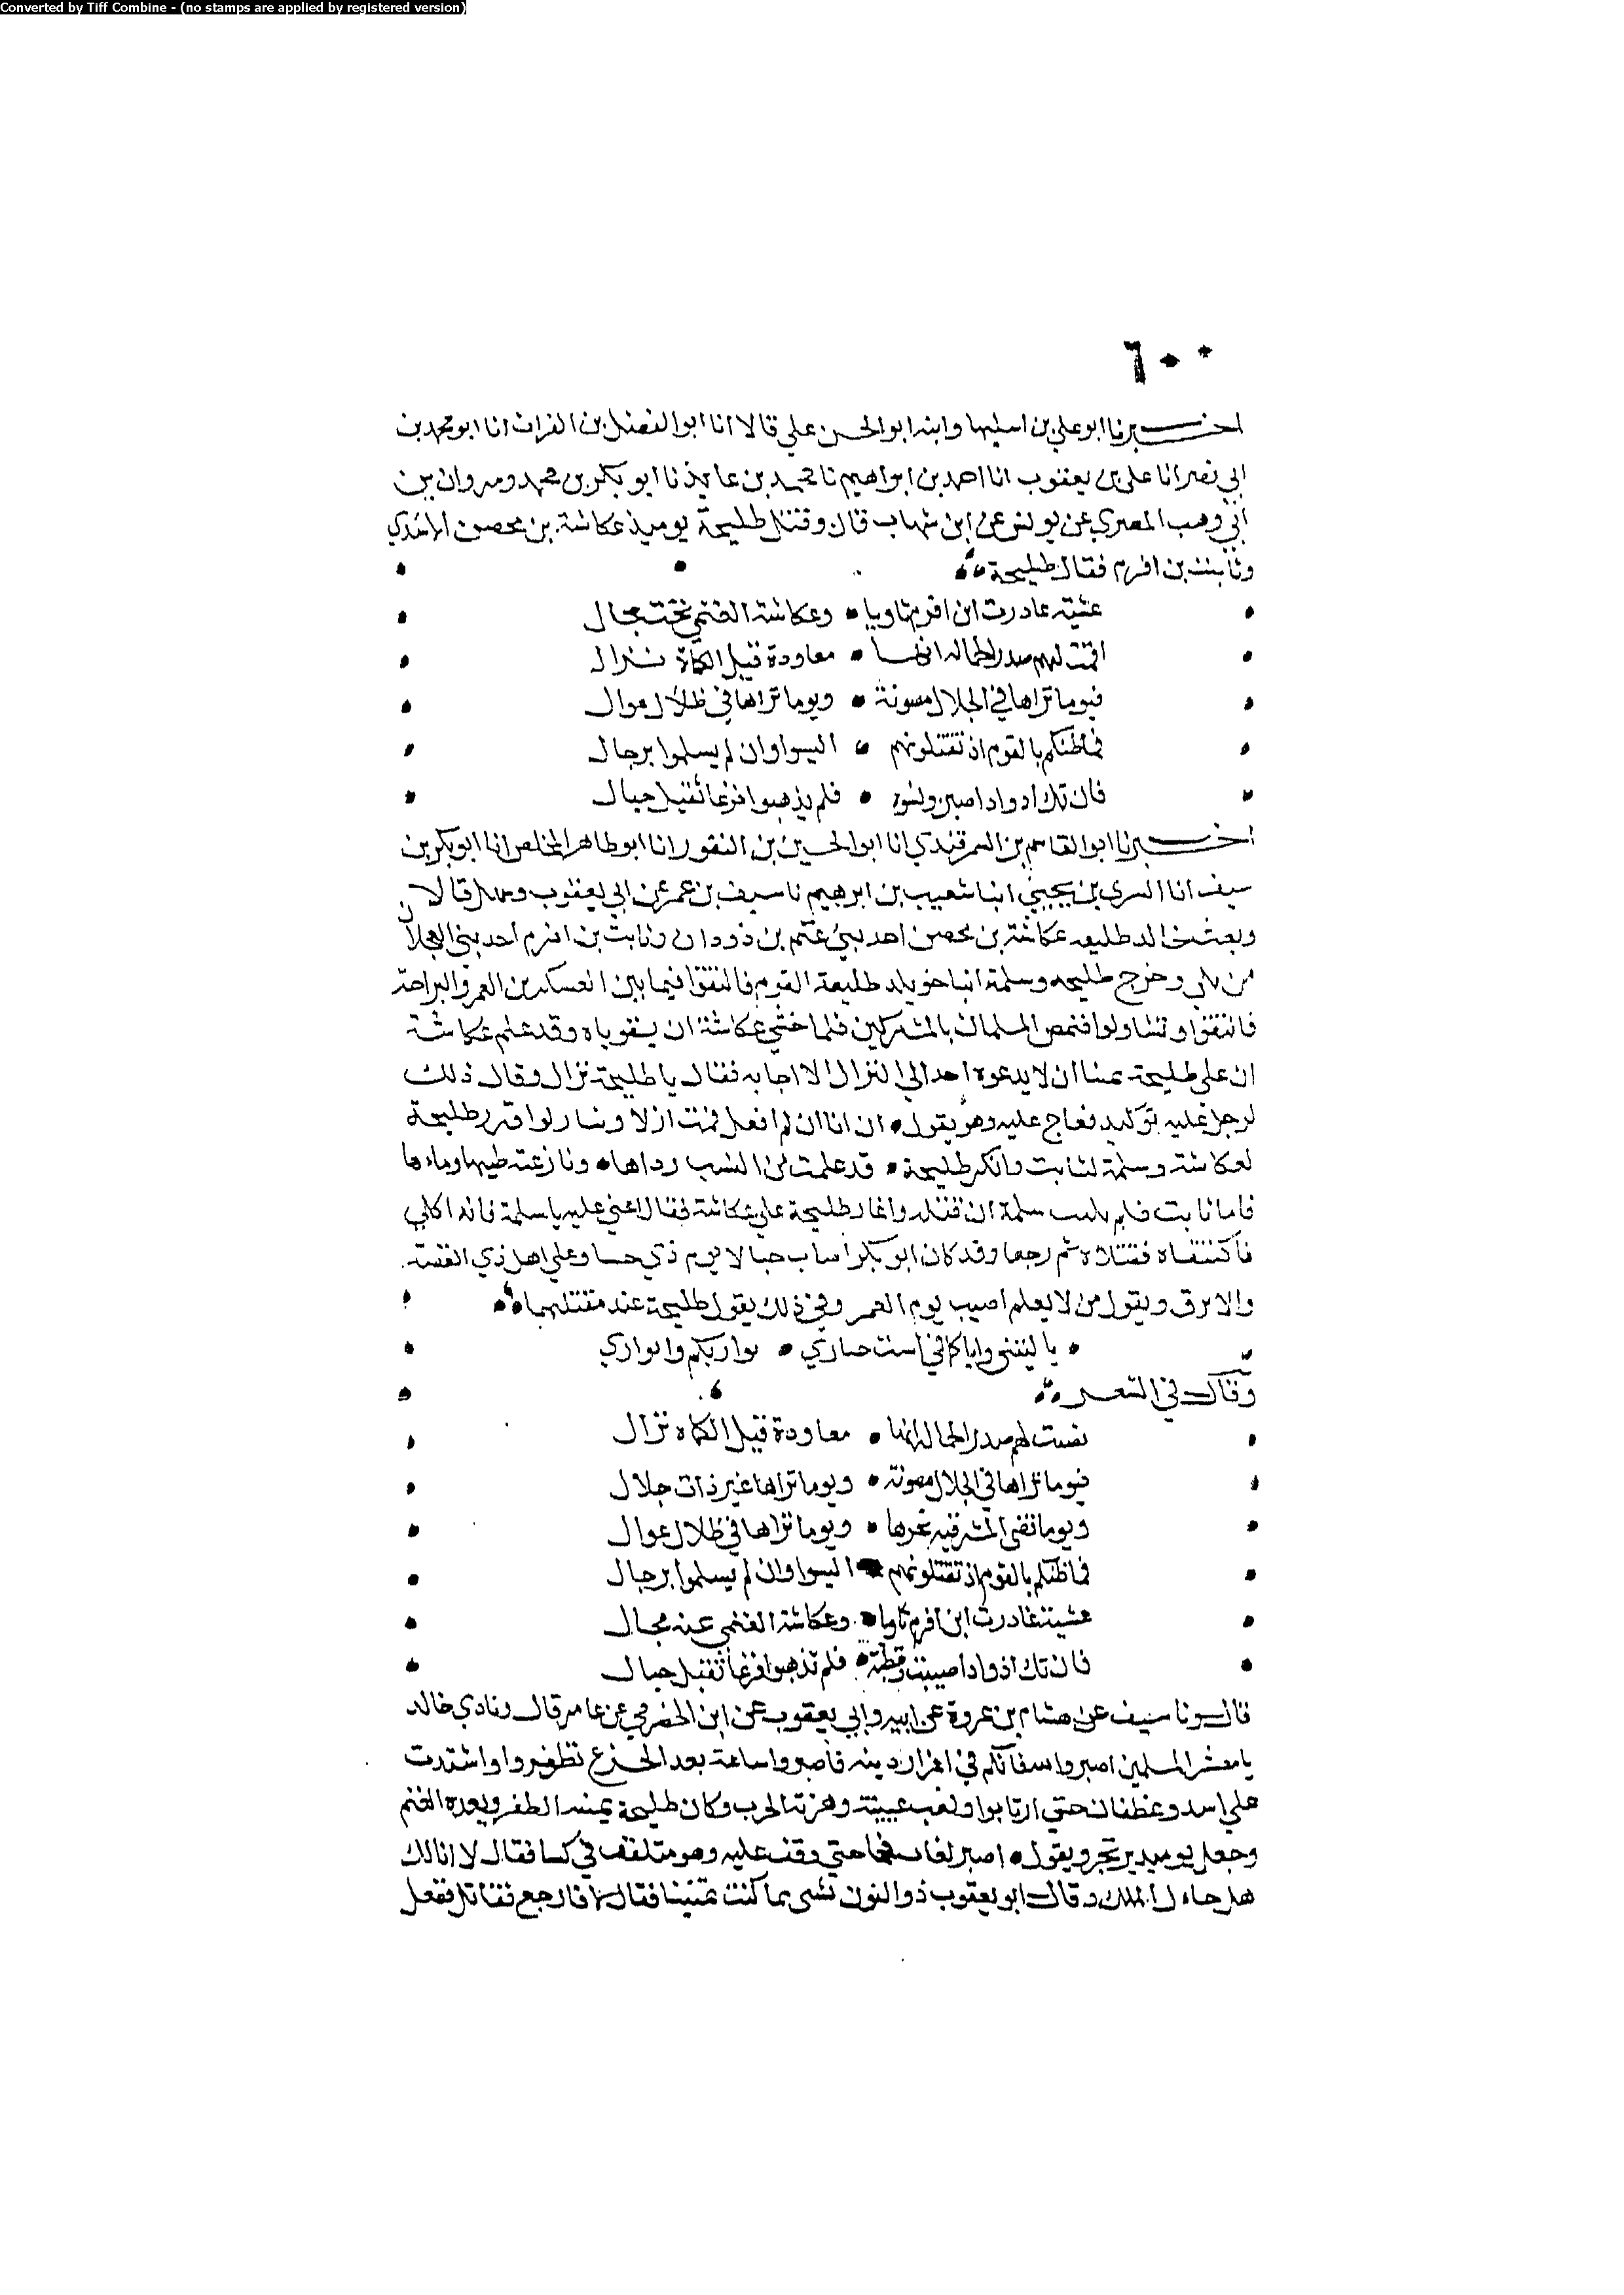 Converted by Tiff Combine - (no stamps are applied by registered version)
٦٠٠
اخبرنا ابو علي بن اسليها وابنه ابو الحسن علي قالا انا ابو الفضل بن الفرات انا ابو محمد بن
ابي نصر انا علي بن يعقوب انا احمد بن ابراهيم نا محمد بن عايذ نا ابو بكر بن محمد ومروان بن
ابي وهب المصري عن يونس عن ابن شهاب قال وقتل طليحة يوميذ عكاشة بن محصن الاسدي
وثابت بن اقرم فقال طليحة
عشية غادرت ابن اقرم ثاويا • وعكاشة الغنمي تحت مجال
اقمت لهم صدر الحمالة انها • معاودة قبل الكماة نزال
فيوما تراها في الجلال مصونة • ويوما تراها في ظلال عوال
فما ظنكم بالقوم اذ تقتلونهم • اليسوا وان لم يسلموا برجال
فان تك اذواد اصبن ونسوة • فلم يذهبوا فرغا بقتل حبال
اخبرنا ابو القاسم بن السمرقندي انا ابو الحسين بن النقور انا ابو طاهر المخلص انا ابو بكر بن
سيف انا السري بن يحيى انبا شعيب بن ابرهيم نا سيف بن عمر عن ابي يعقوب وسهل قالا
وبعث خالد طليعه عكاشة بن محصن احد بني غنم بن دودان وثابت بن اقرم احد بني العجلان
من بلي وخرج طليحه وسلمة ابنا خويلد طليعة القوم فالتقوا فيما بين العسكرين الغمر والبزاخة
فالتقوا وتشاولوا المسلمان بالمشركين فلما خشي عكاشة ان يفوتاه وقد علم عكاشة
ان على طليحة ان لا يدعوه احد الى النزال الا اجابه فقال يا طليحة نزال وقال ذلك
لرجل عليه فعاج عليه وهو يقول • ان انا ان لم افعل فمت ازلا طليحة
لعكاشة وسلمة لثابت وانكر طليحة • قد علمت رداها • ونازعته وماءها
فاما ثابت فلم يلبث سلمة ان قتله واغار طليحة علي عكاشة فقال اعني عليه يا سلمة فانه اكلي
فاكتنفاه فقتلاه ثم رجعا وقد كان ابو بكر اصاب حبالا يوم ذي حسا وعلي اهل ذي القصة
والابرق ويقول من لا يعلم اصيب يوم الغمر وفي ذلك يقول طليحة عند مقتلهما
• يا ليتني واياكما في • بواريكم واتواري
وقال في الشعر
نصبت لهم صدر الحمالة انها • معاودة قبل الكماة نزال
فيوما تراها في الجلال مصونة • ويوما تراها غير ذات جلال
ويوما تضى المشرفية نحرها • ويوما تراها في ظلال عوال
فما ظنكم بالقوم اذ تقتلونهم • اليسوا وان لم يسلموا برجال
عشية غادرت ابن اقرم ثاويا • وعكاشة الغنمي عند مجال
فان تك اذواد اصيبت • فلم تذهبوا فرغا بقتل حبال
قال ونا سيف عن هشام بن عروة عن ابيه وابي يعقوب عن ابن الحضرمي عن عامر قال ونادي خالد
يا معشر المسلمين اصبروا في اعزاز دينه فاصبروا ساعة بعد الجزع تظفروا واشتدت
علي اسد وغطفان حتي ارتابوا عيينة وهزته الحرب وكان طليحة يمنيه الظفر ويعده الغنم
وجعل يوميد يرتجز ويقول • اصبر حتي وقف عليه وهو متلفف في كسا فقال لا ابا لك
هل جاءك الملك وقال ابو يعقوب ذو النون بشي مما كنت تمنينا فقال لا فارجع فقاتل ففعل